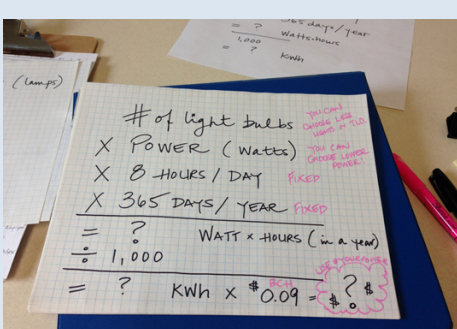 365 days / year
= ? Watts-hours
1,000
= ? Kwh
(lamps)
# of light bulbs
YOU CAN
CHOOSE LESS
X POWER (Watts)
YOU CAN
CHOOSE LOWER
POWER!
X 8 HOURS / DAY FIXED
X 365 DAYS / YEAR FIXED
= ? WATT x HOURS (in a year)
÷ 1,000
= ? KWh x $0.09 = $ ? $
BCH